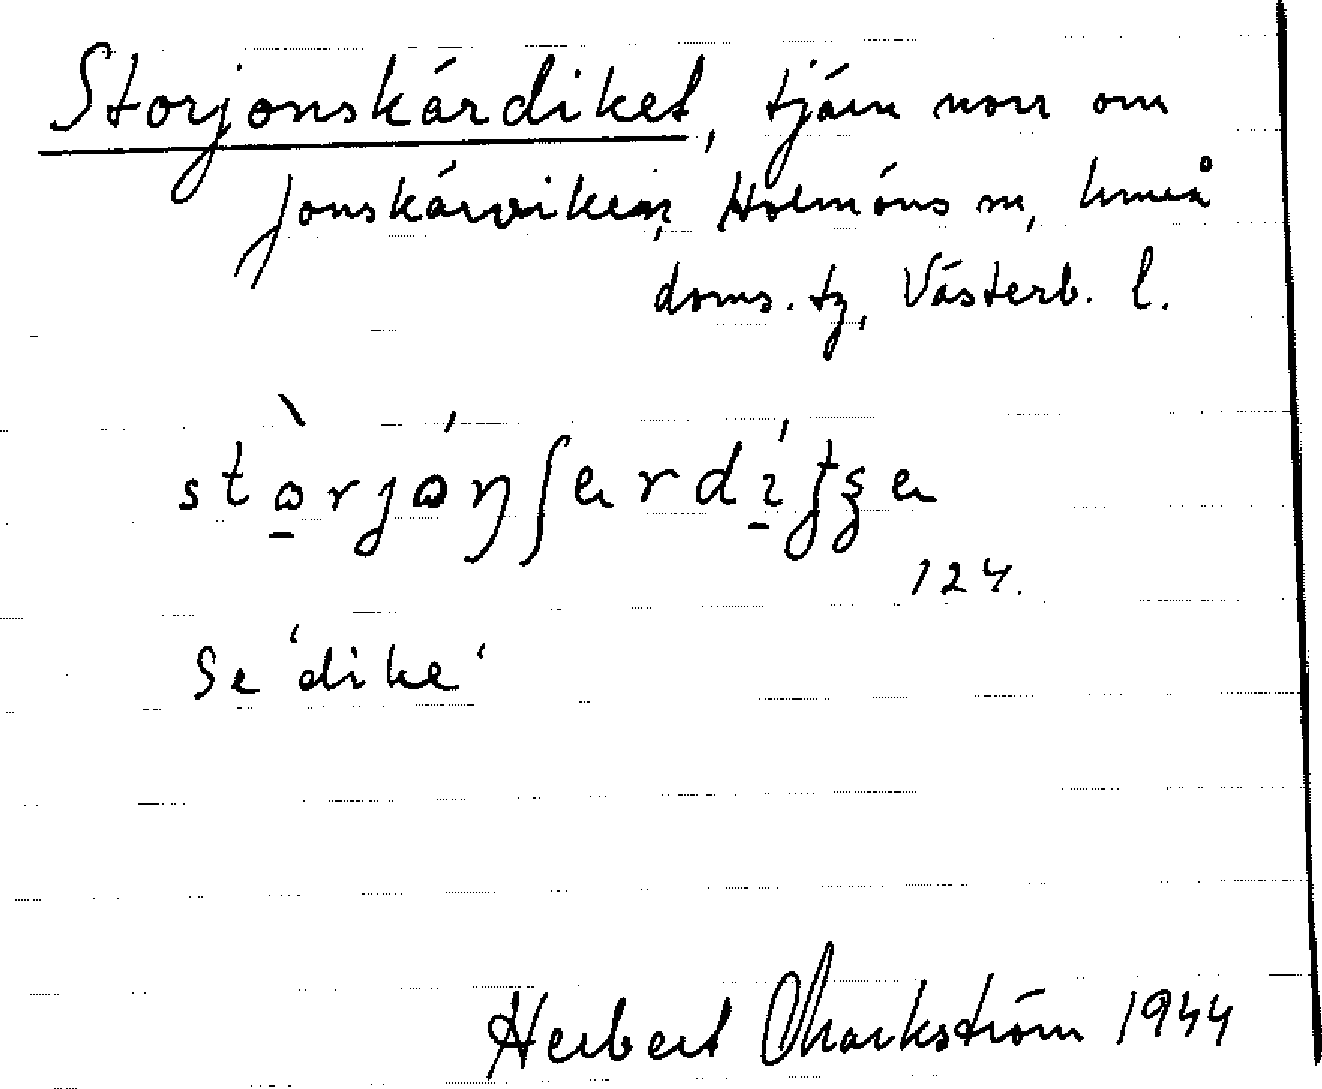 Storjonskärdiket, tjärn norr om
Jonskärviken, Holmöns sn, Umeå
doms. tg, Västerb. l.
124.
Se 'dike'
Herbert Markström 1944